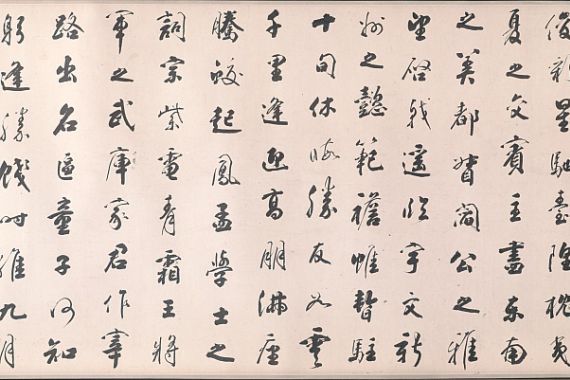 俊彩星馳臺隍枕夷
夏之交賓主盡東南
之美都督閻公之雅
望啓戟遙臨宇文新
州之懿範襜帷暫駐
十旬休暇勝友如雲
千里逢迎高朋滿座
騰蛟起鳳孟學士之
詞宗紫電青霜王將
軍之武庫家君作宰
路出名區童子何知
躬逢勝餞時維九月